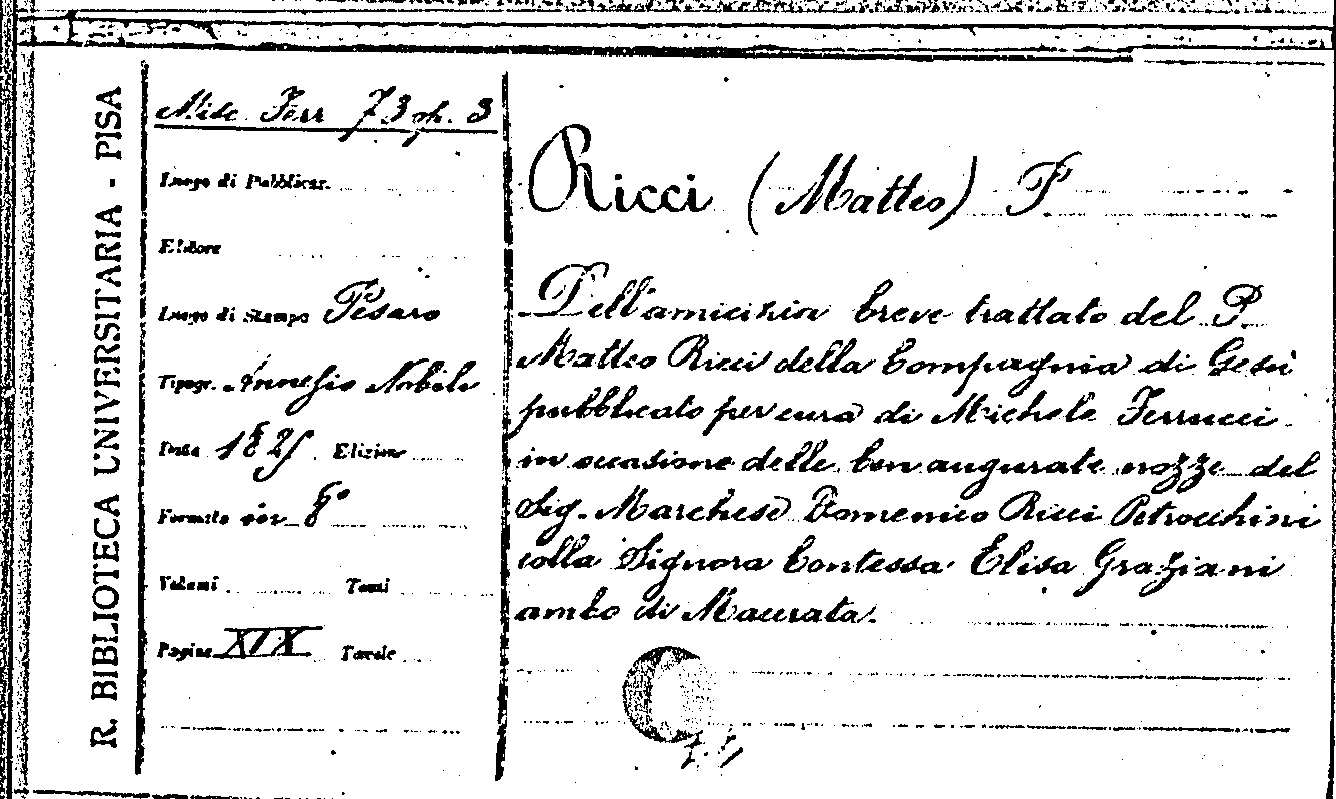 R. BIBLIOTECA UNIVERSITARIA - PISA
Misc. Ferr 73 op. 3
Luogo di Pubblicaz.
Editore
Luogo di Stampa Pesaro
Tipogr. Annesio Nobile
Data 1825 Edizione
Formato in 8°
Volumi Tomi
Pagine XIX Tavole
Ricci (Matteo) P
Dell'amicizia breve trattato del P.
Matteo Ricci della Compagnia di Gesù
pubblicato per cura di Michele Ferrucci
in occasione delle ben augurate nozze del
Sig. Marchese Domenico Ricci Petrocchini
colla Signora Contessa Elisa Graziani
ambo di Macerata.